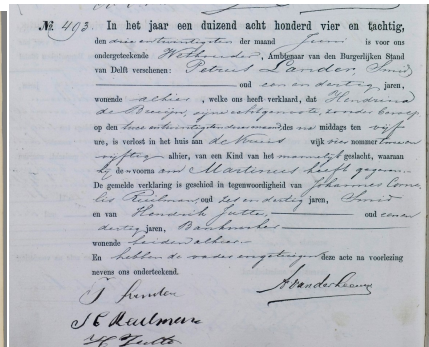 No. 493 In het jaar een duizend acht honderd vier en tachtig,
den drie en twintigsten der maand Juni is voor ons
ondergeteekende Wethouder, Ambtenaar van den Burgerlijken Stand
van Delft verschenen: Petrus Lander, Smid
oud een en dertig jaren,
wonende alhier, welke ons heeft verklaard, dat Hendrina
de Bruijn, zijne echtgenoote, zonder beroep
op den twee en twintigsten dezer maand, des na middags ten vijf
ure, is verloot in het huis aan de wijk vier nommer twee en
vijftig alhier, van een Kind van het mannelijk geslacht, waaraan
hij de voornaam Martinus heeft gegeven.
De gemelde verklaring is geschied in tegenwoordigheid van Johannes Corne-
lis oud zes en dertig jaren, Smid
en van Hendrik Jutte, oud een en
dertig jaren,
wonende beiden alhier
En hebben de vader en getuigen deze acte na voorlezing
nevens ons onderteekend.
A van der Leeuw